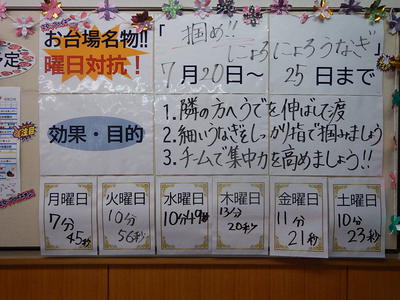 お台場名物!!
曜日対抗!
「掴め!!
にょろにょろうなぎ」
7月20日〜25日まで
効果・目的
1.隣の方へうでを伸ばして渡
2.細いうなぎをしっかり指で掴みましょう
3.チームで集中力を高めましょう!!
月曜日
7分
45秒
火曜日
10分
56秒
水曜日
10分49秒
木曜日
13分
20秒
金曜日
11分
21秒
土曜日
10分
23秒
予定
注目